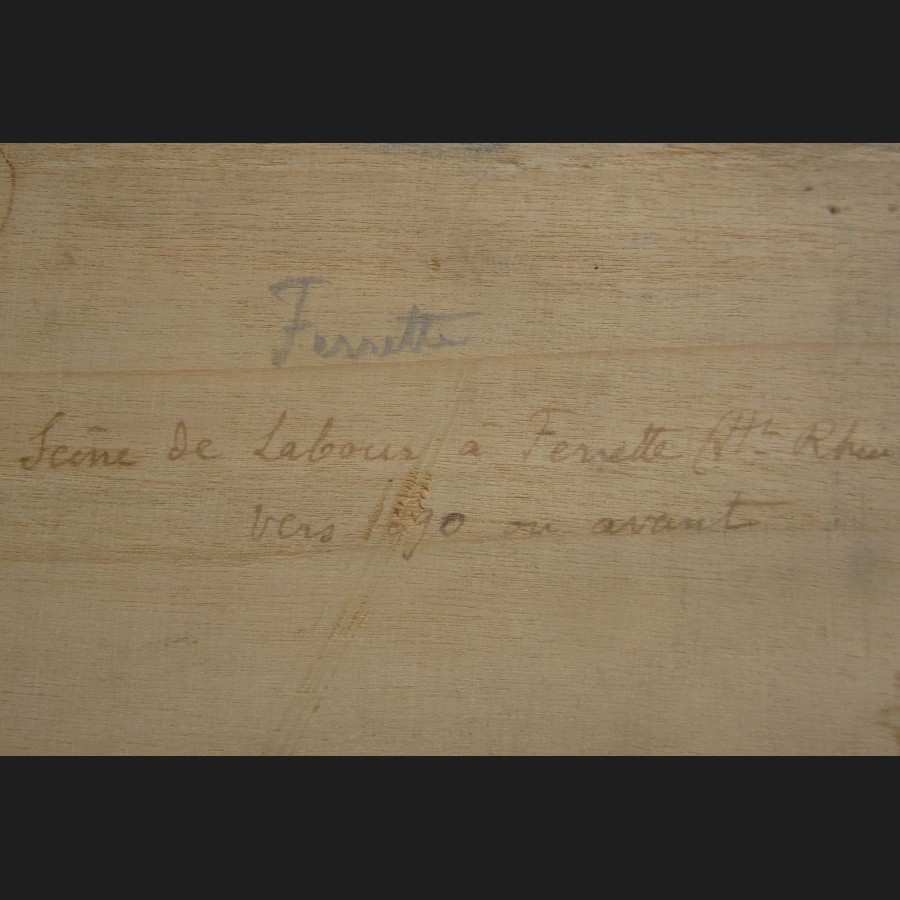 Ferrette
Scène de Labour à Ferrette (Ht Rhin
vers 1890 ou avant